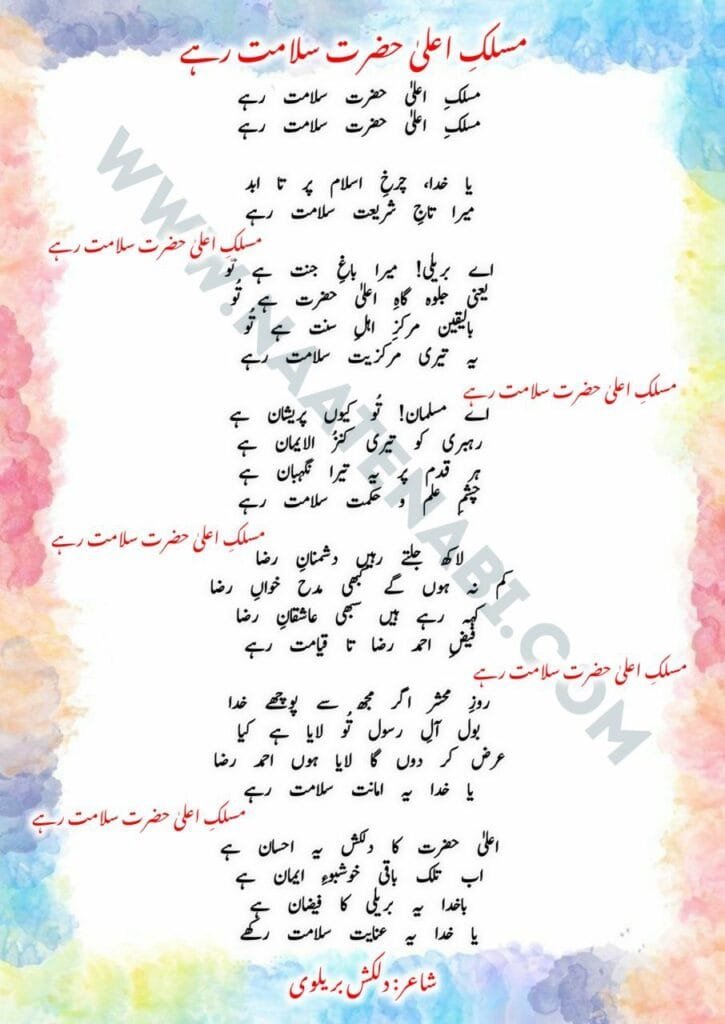 مسلکِ اعلیٰ حضرت سلامت رہے
مسلکِ اعلیٰ حضرت سلامت رہے
مسلکِ اعلیٰ حضرت سلامت رہے
یا خدا، چرخِ اسلام پر تا ابد
میرا تاجِ شریعت سلامت رہے
مسلکِ اعلیٰ حضرت سلامت رہے
اے بریلی! میرا باغِ جنت ہے تُو
یعنی جلوہ گاہِ اعلیٰ حضرت ہے تُو
بالیقین مرکزِ اہلِ سنت ہے تُو
یہ تیری مرکزیت سلامت رہے
مسلکِ اعلیٰ حضرت سلامت رہے
اے مسلمان! تُو کیوں پریشان ہے
رہبری کو تیری کنزُ الایمان ہے
ہر قدم پر یہ تیرا نگہبان ہے
چشمِ علم و حکمت سلامت رہے
مسلکِ اعلیٰ حضرت سلامت رہے
لاکھ جلتے رہیں دشمنانِ رضا
کم نہ ہوں گے کبھی مدح خواںِ رضا
کہہ رہے ہیں سبھی عاشقانِ رضا
فیضِ احمد رضا تا قیامت رہے
مسلکِ اعلیٰ حضرت سلامت رہے
روزِ محشر اگر مجھ سے پوچھے خدا
بول آلِ رسول تُو لایا ہے کیا
عرض کر دوں گا لایا ہوں احمد رضا
یا خدا یہ امانت سلامت رہے
مسلکِ اعلیٰ حضرت سلامت رہے
اعلیٰ حضرت کا دلکش یہ احسان ہے
اب تلک باقی خوشبوءِ ایمان ہے
باخدا یہ بریلی کا فیضان ہے
یا خدا یہ عنایت سلامت رکھے
شاعر: دلکش بریلوی
WWW.NAATENABI.COM